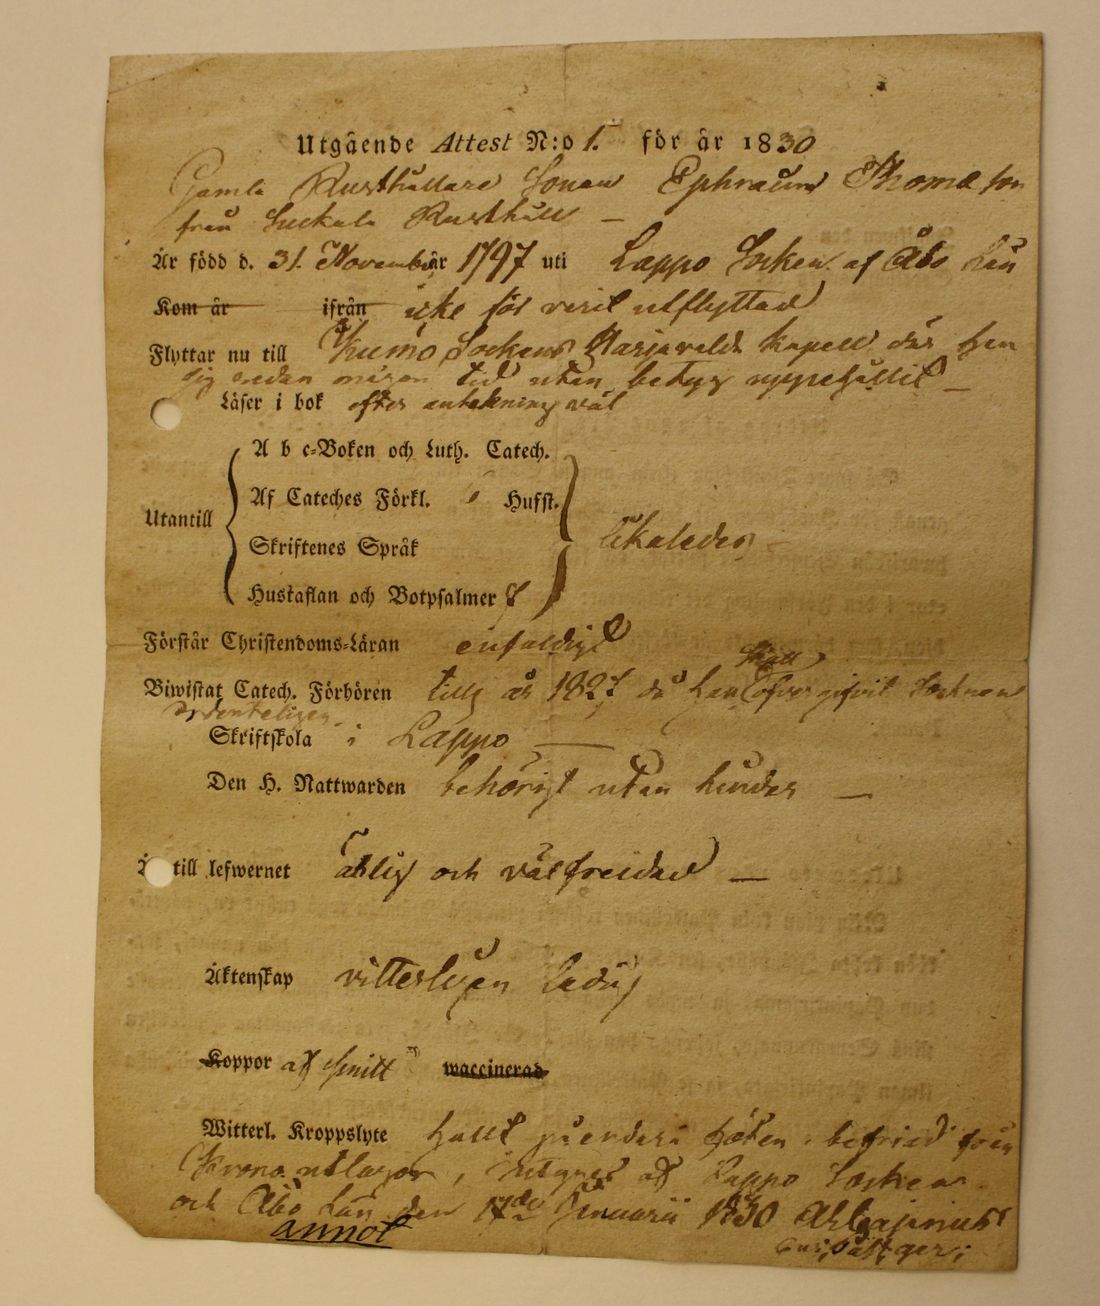 Utgående Attest N:o 1. för år 1830
Gamle Rusthållare Sonen Ephraim Thomæ son
från Suckala Rusthåll —
Är född d. 31. Novembr år 1797 uti Lappo Socken af Åbo Län
Kom år ifrån icke för varit utflyttad
Flyttar nu till Kumo Sockens Harjavalda Kapell, där han
sig redan någon tid utan betyg uppehållit —
Läser i bok efter anteckning väl
A b c-Boken och Luth. Catech.
Af Cateches Förkl. 6 Hufst.
Utantill
Skriftenes Språk
likaledes
Hustaflan och Botpsalmer 7
Förstår Christendoms-Läran enfaldigt
Biwistat Catech. Förhören till år 1827 då han skall öfvergifvit Socknen
ordenteligen
Skriftskola i Lappo —
Den H. Nattwarden behörigt utan hinder —
till lefwernet ärlig och välfreidad —
Äktenskap vitterligen ledig
Koppor af Smitt waccinerad
Witterl. Kroppslyte halt på endera foten, befriad från
Krono utlagor, betygas af Lappo Socken
och Åbo Län den 17de Januarii 1830
annot